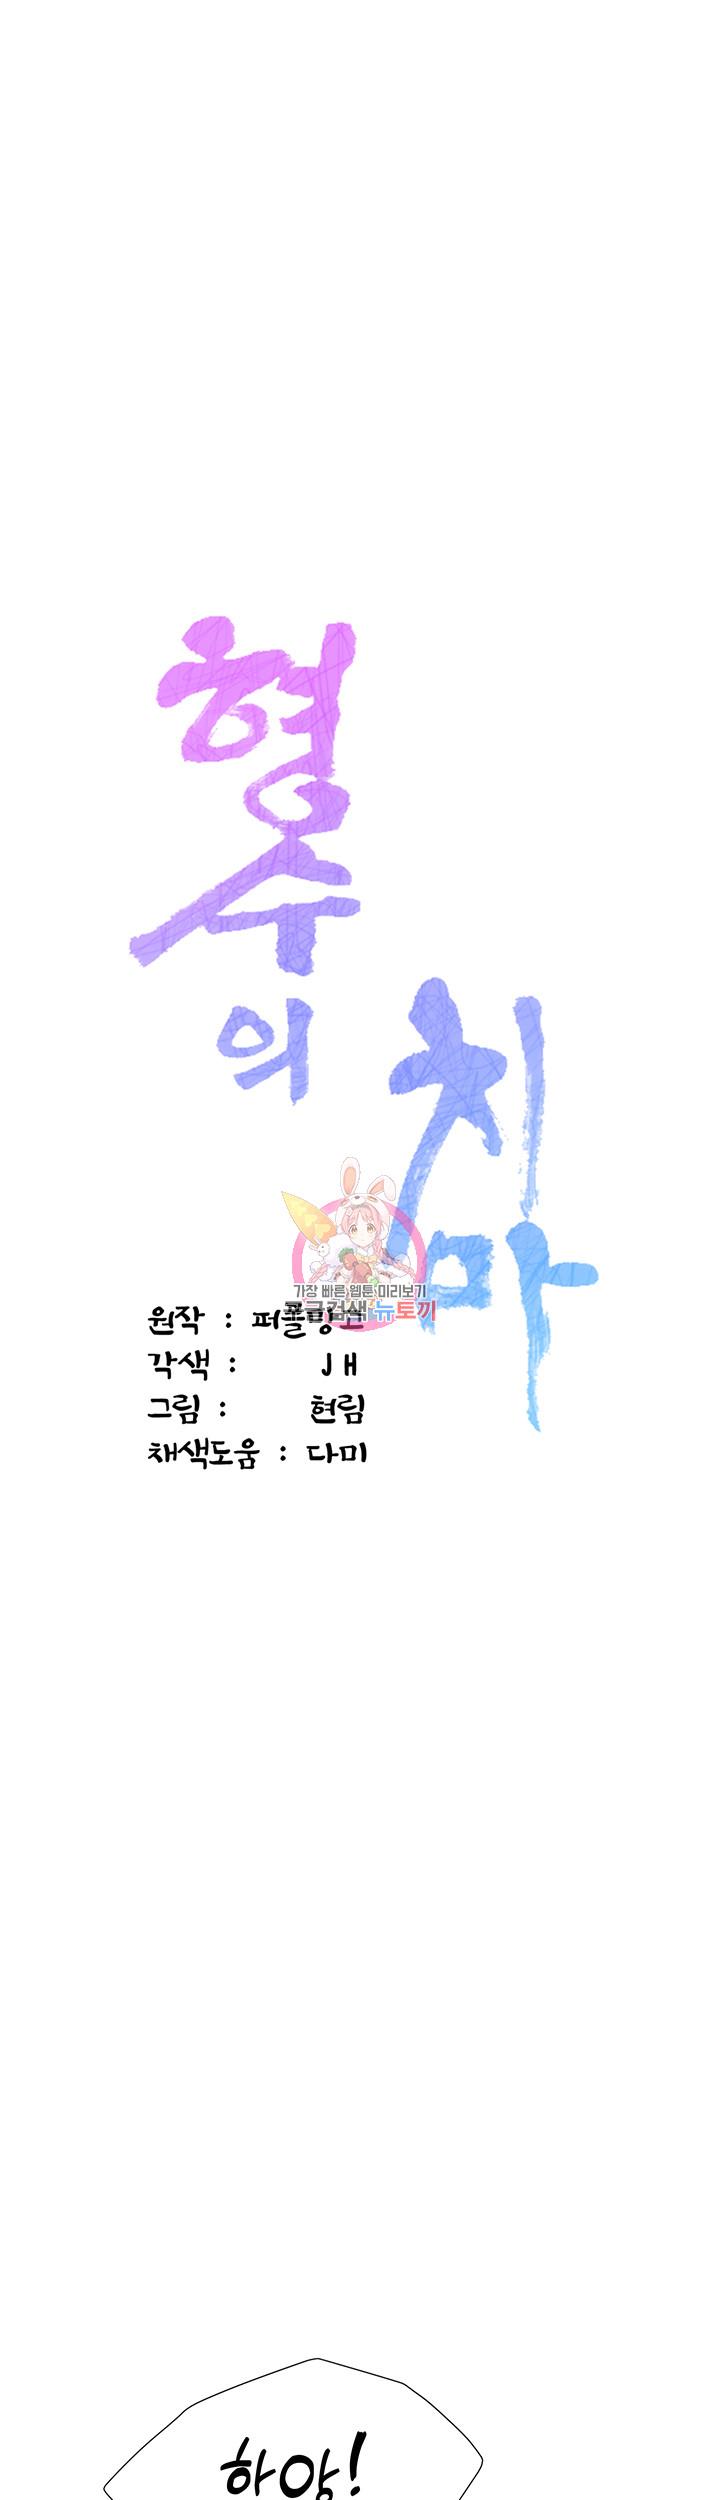 형수
의
치마
가장 빠른 웹툰 미리보기
구글검색 뉴토끼
원작 :
각색 : J H
그림 : 현림
채색도움 : 나미
하앙!